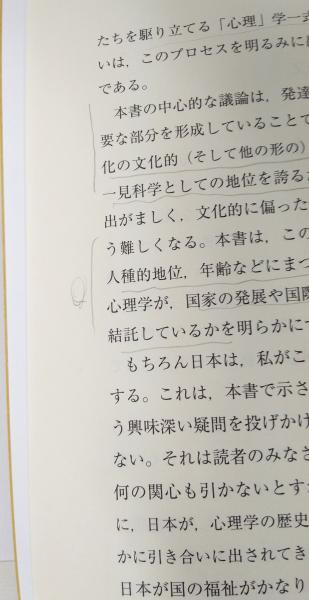 たちを駆り立てる「心理」学一
いは，このプロセスを明るみに
である。
本書の中心的な議論は，発達
要な部分を形成していることで
化の文化的（そして他の形の）
一見科学としての地位を誇る
出がましく，文化的に偏った
う難しくなる。本書は，この
人種的地位，年齢などにまつ
心理学が，国家の発展や国際
結託しているかを明らかに
もちろん日本は，私がこ
する。これは，本書で示さ
う興味深い疑問を投げかけ
ない。それは読者のみなさ
何の関心も引かないとす
に，日本が，心理学の歴史
かに引き合いに出されてき
日本が国の福祉がかなり